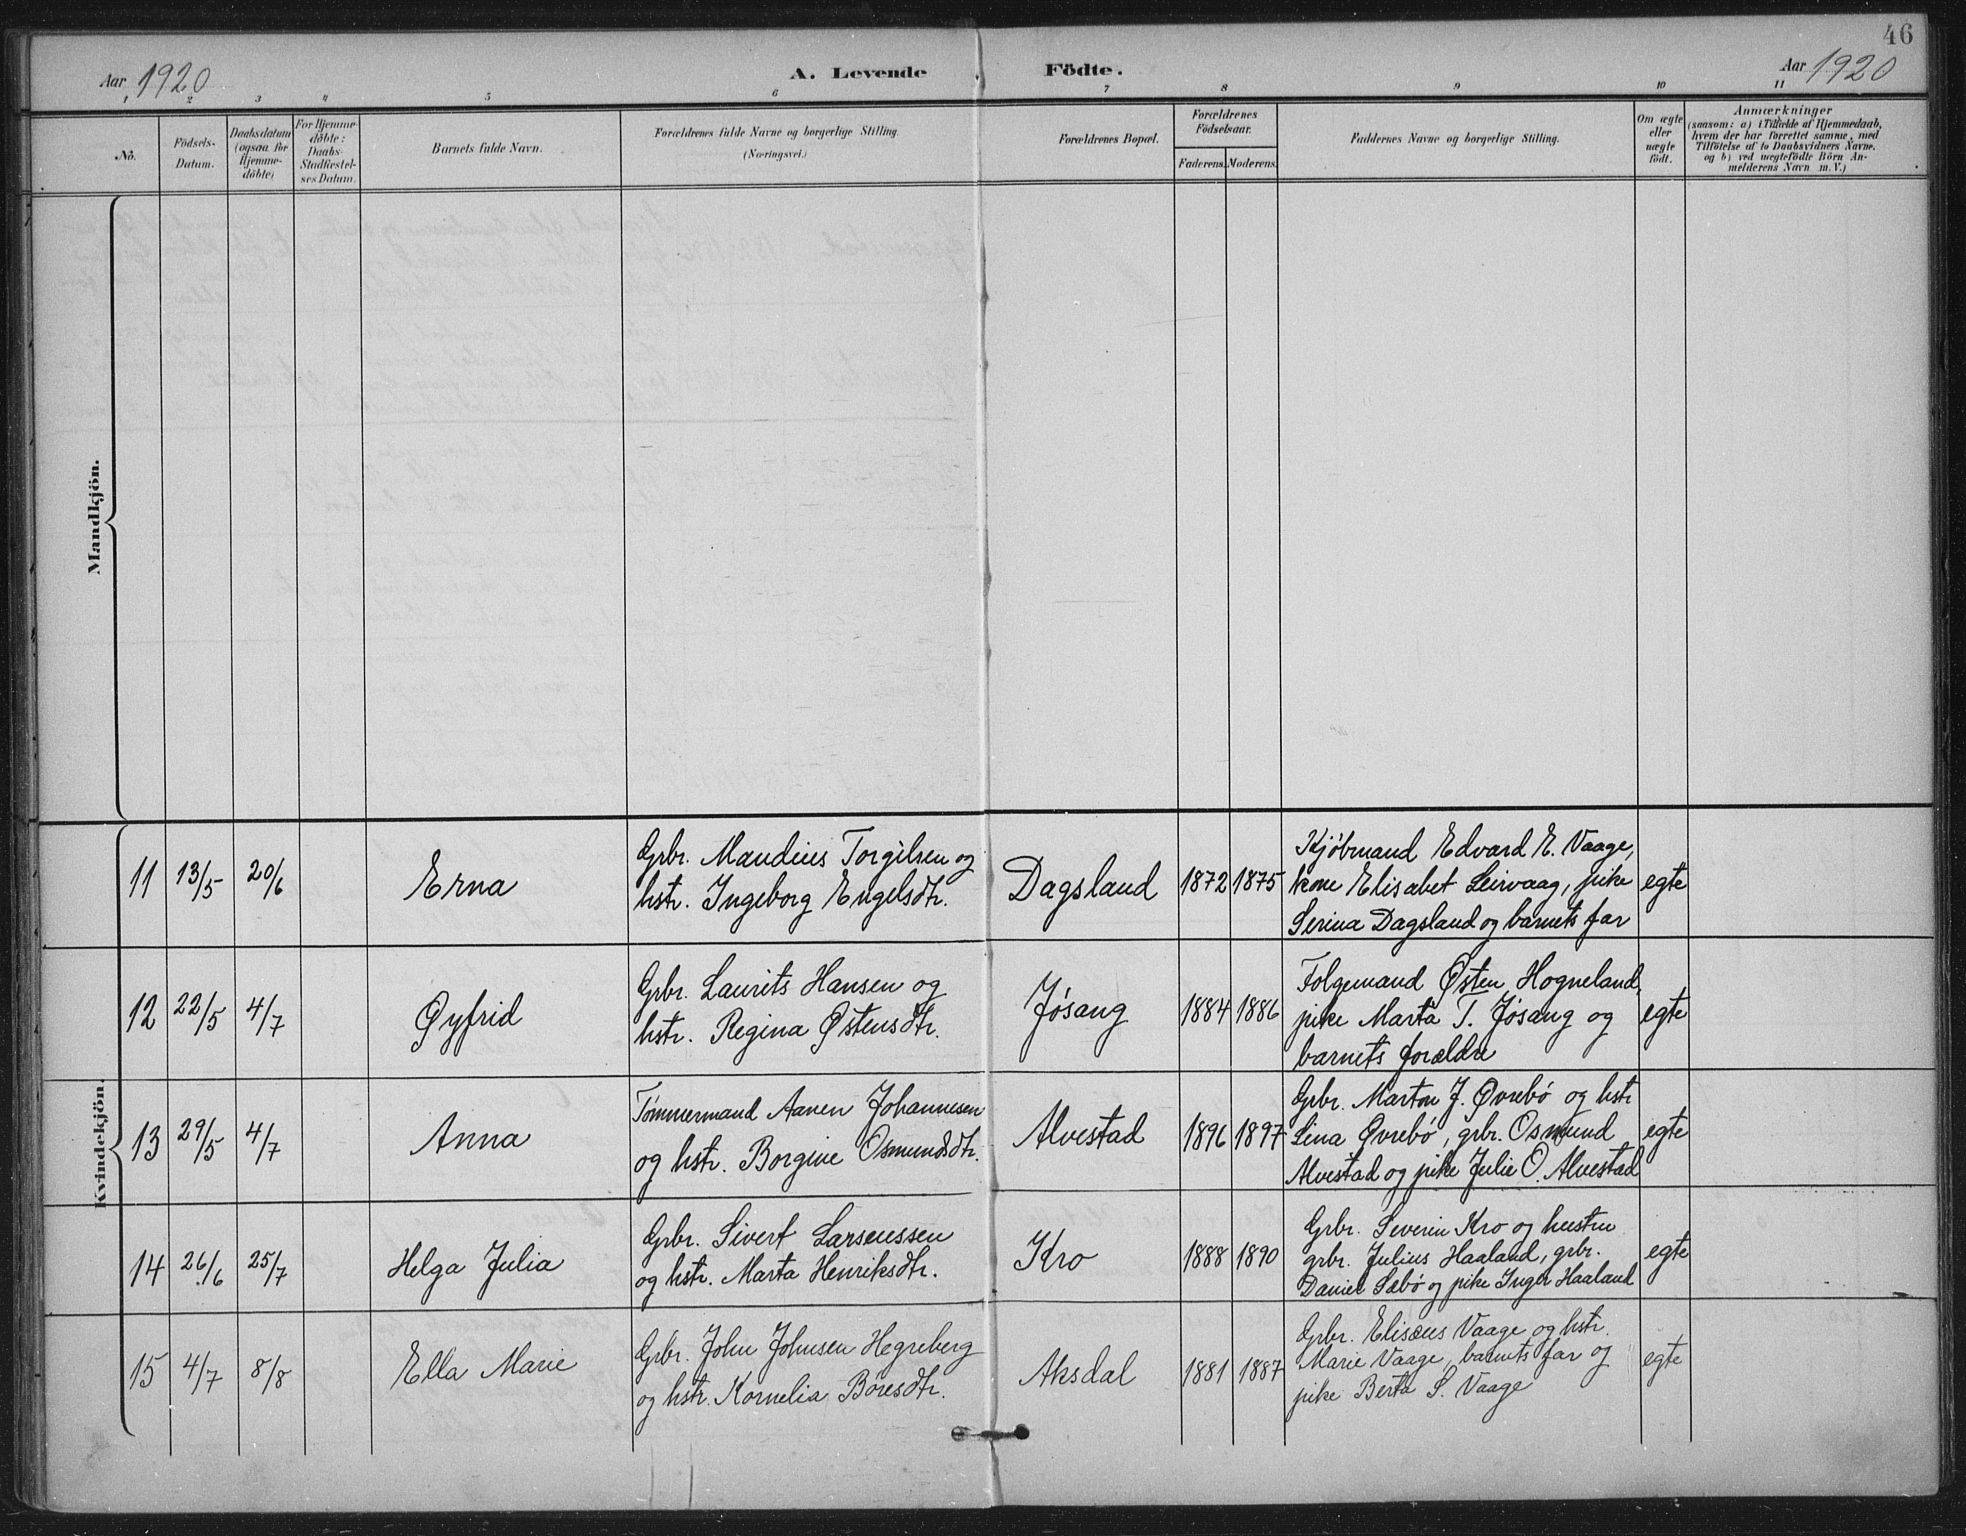 46
Aar 1920
A. Levende Födte.
Aar 1920
1 2 3 4 5 6 7 8 9 10 11
No.
Födsels-
Datum.
Daabsdatum
(ogsaa for
Hjemme-
döbte)
For Hjemme-
döbte:
Daabs-
Stadfestel-
ses Datum.
Barnets fulde Navn.
Forældrenes fulde Navne og borgerlige Stilling.
(Næringsvei.)
Forældrenes Bopæl.
Forældrenes
Födselsaar.
Faderens. Moderens.
Faddernes Navne og borgerlige Stilling.
Om ægte
eller
uægte
födt.
Anmærkninger
(saasom: a) i Tilfælde af Hjemmedaab,
hvem der har forrettet samme, med
Tilföielse af to Daabsvidners Navne.
og b) ved uægtefödte Börn An-
melderens Navn m. V.)
Mandkjön.
Kvindekjön.
11 13/5 20/6
Erna
Grbr. Maudius Torgilsen og
hstr. Ingeborg Engelsdtr.
Dagsland
1872 1875
Kjøbmand Edvard E. Vaage,
kone Elisabet Leirvaag, pike
Serina Dagsland og barnets far
egte
12 22/5 4/7
Øyfrid
Grbr. Laurits Hansen og
hstr. Regina Østensdtr.
Jøsang
1884 1886
Folgemand Østen Hogneland,
pike Marta T. Jøsang og
barnets forældre
egte
13 29/5 4/7
Anna
Tømmermand Aanen Johannesen
og hstr. Borgine Osmundsdtr.
Alvestad
1896 1897
Grbr. Marton J. Øvrebø og hstr
Lina Øvrebø, grbr. Osmund
Alvestad og pike Julie O. Alvestad
egte
14 26/6 25/7
Helga Julia
Grbr. Sivert Larseussen
og hstr. Marta Henriksdtr.
Kro
1888 1890
Grbr. Severin Kro og hustru
grbr. Julius Haaland, grbr.
Daniel Sæbø og pike Inger Haaland
egte
15 4/7 8/8
Ella Marie
Grbr. John Johnsen Hegreberg
og hstr. Kornelia Børesdtr.
Aksdal
1881 1887
Grbr. Elisæus Vaage og hstr.
Marie Vaage, barnets far og
pike Berta S. Vaage
egte